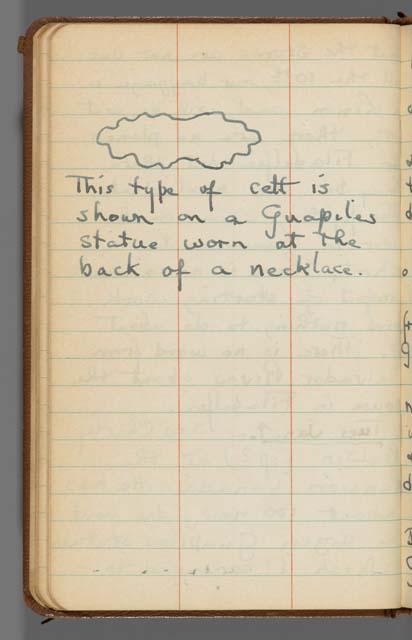 This type of celt is
shown on a Guapiles
statue worn at the
back of a necklace.